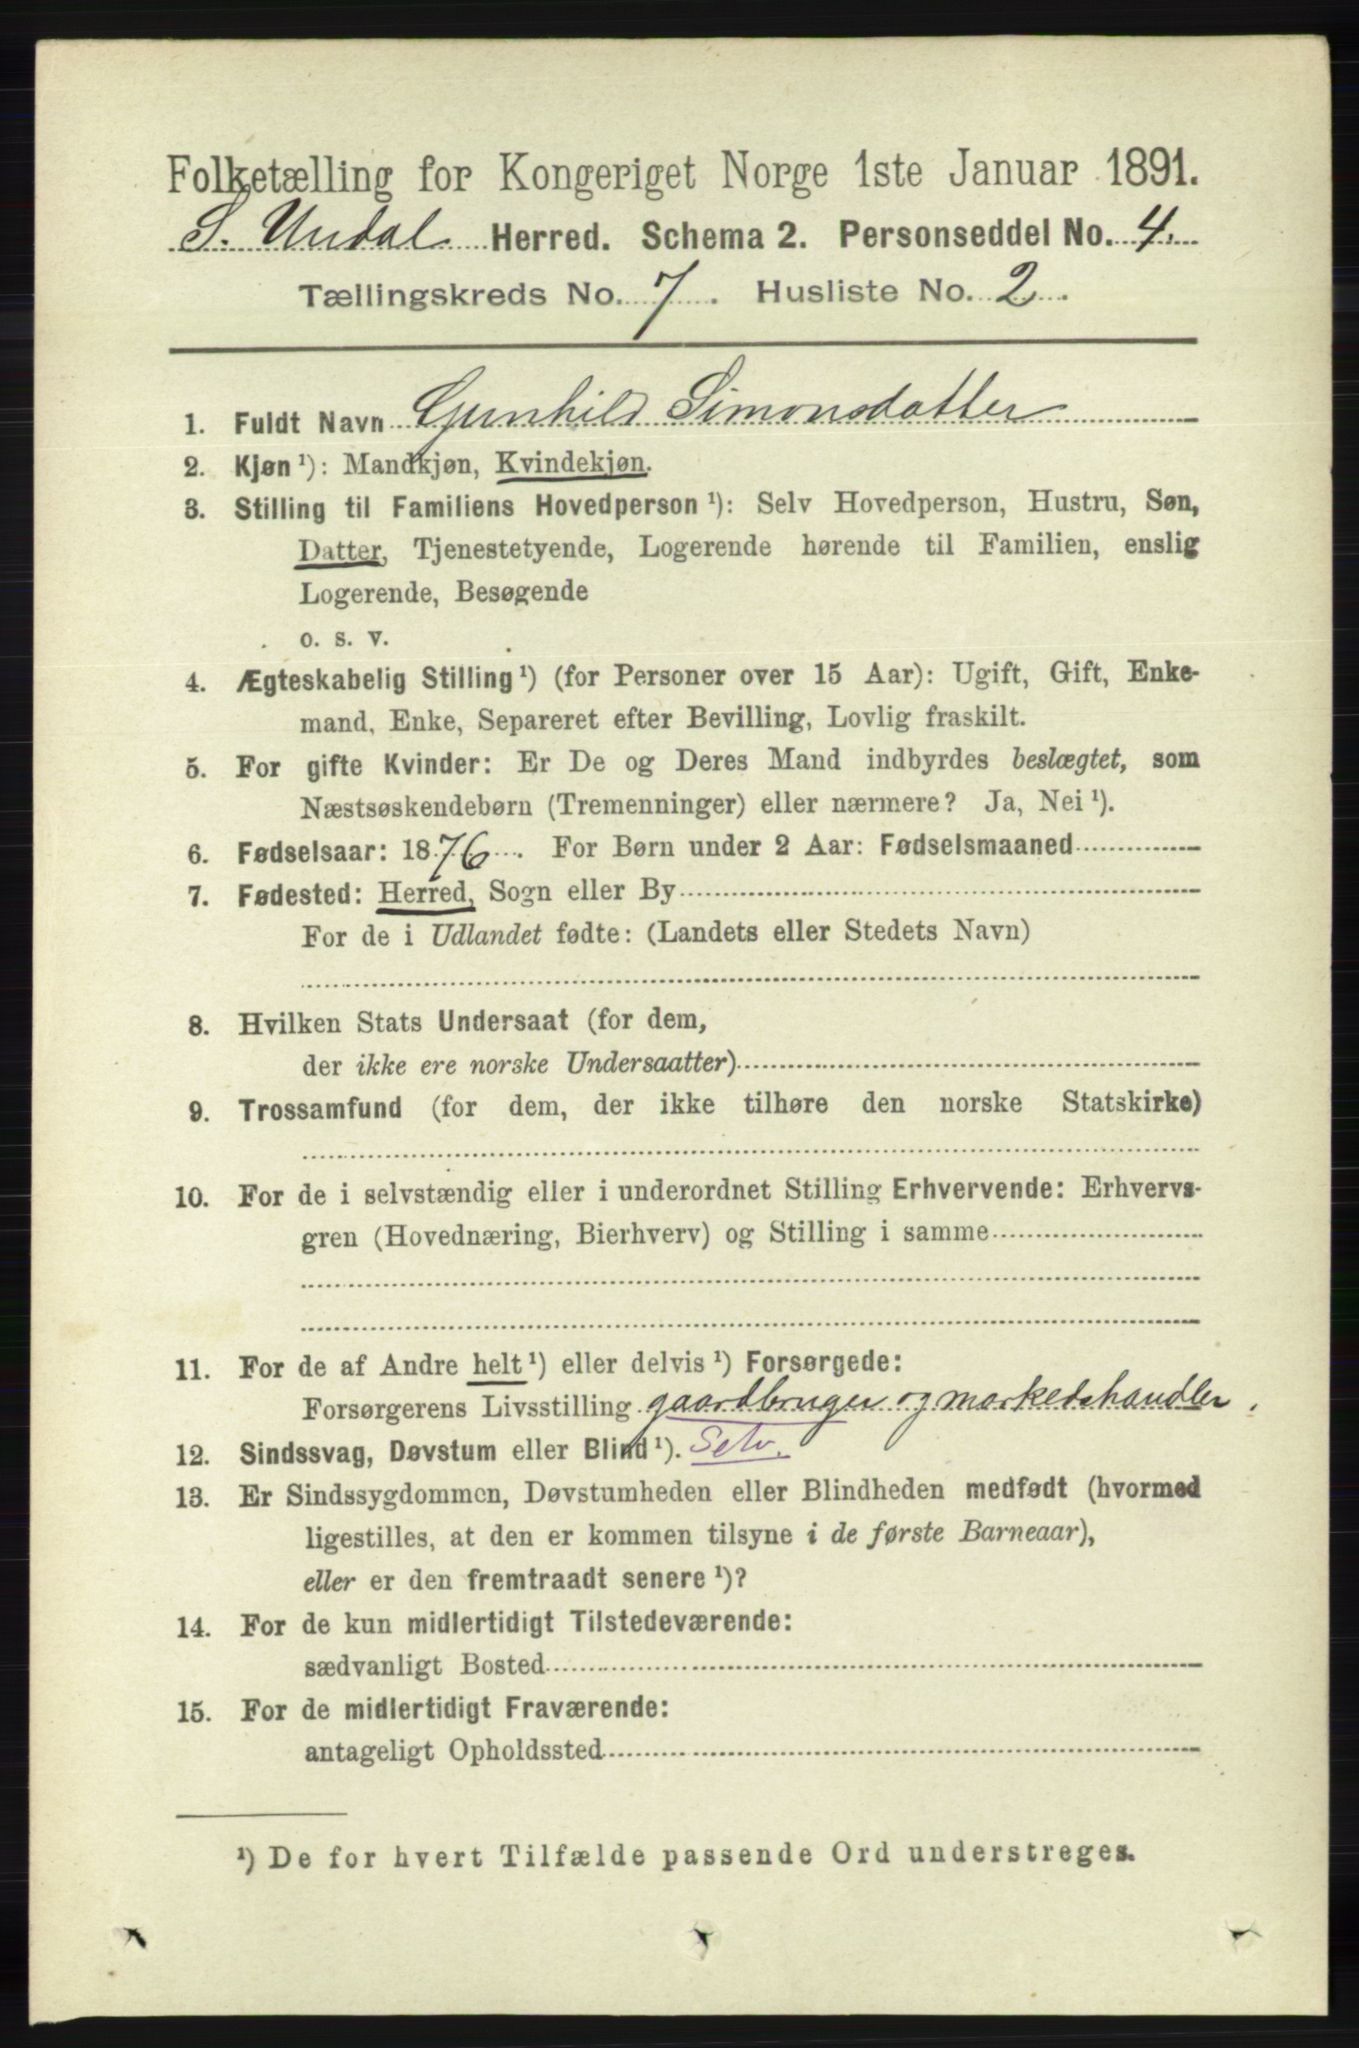 Folketælling for Kongeriget Norge 1ste Januar 1891.
S. Undal Herred. Schema 2. Personseddel No. 4.
Tællingskreds No. 7. Husliste No. 2.
1. Fuldt Navn Gunhild Simonsdatter
2. Kjøn ¹): Mandkjøn, Kvindekjøn.
3. Stilling til Familiens Hovedperson ¹): Selv Hovedperson, Hustru, Søn,
Datter, Tjenestetyende, Logerende hørende til Familien, enslig
Logerende, Besøgende
o. s. v.
4. Ægteskabelig Stilling ¹) (for Personer over 15 Aar): Ugift, Gift, Enke-
mand, Enke, Separeret efter Bevilling, Lovlig fraskilt.
5. For gifte Kvinder: Er De og Deres Mand indbyrdes beslægtet, som
Næstsøskendebørn (Tremenninger) eller nærmere? Ja, Nei ¹).
6. Fødselsaar: 1876. For Børn under 2 Aar: Fødselsmaaned
7. Fødested: Herred, Sogn eller By
For de i Udlandet fødte: (Landets eller Stedets Navn)
8. Hvilken Stats Undersaat (for dem,
der ikke ere norske Undersaatter)
9. Trossamfund (for dem, der ikke tilhøre den norske Statskirke)
10. For de i selvstændig eller i underordnet Stilling Erhvervende: Erhvervs-
gren (Hovednæring, Bierhverv) og Stilling i samme
11. For de af Andre helt ¹) eller delvis ¹) Forsørgede:
Forsørgerens Livsstilling gaardbruger og markedshandler.
12. Sindssvag, Døvstum eller Blind ¹). Selv.
13. Er Sindssygdommen, Døvstumheden eller Blindheden medfødt (hvormed
ligestilles, at den er kommen tilsyne i de første Barneaar),
eller er den fremtraadt senere ¹)?
14. For de kun midlertidigt Tilstedeværende:
sædvanligt Bosted
15. For de midlertidigt Fraværende:
antageligt Opholdssted
¹) De for hvert Tilfælde passende Ord understreges.